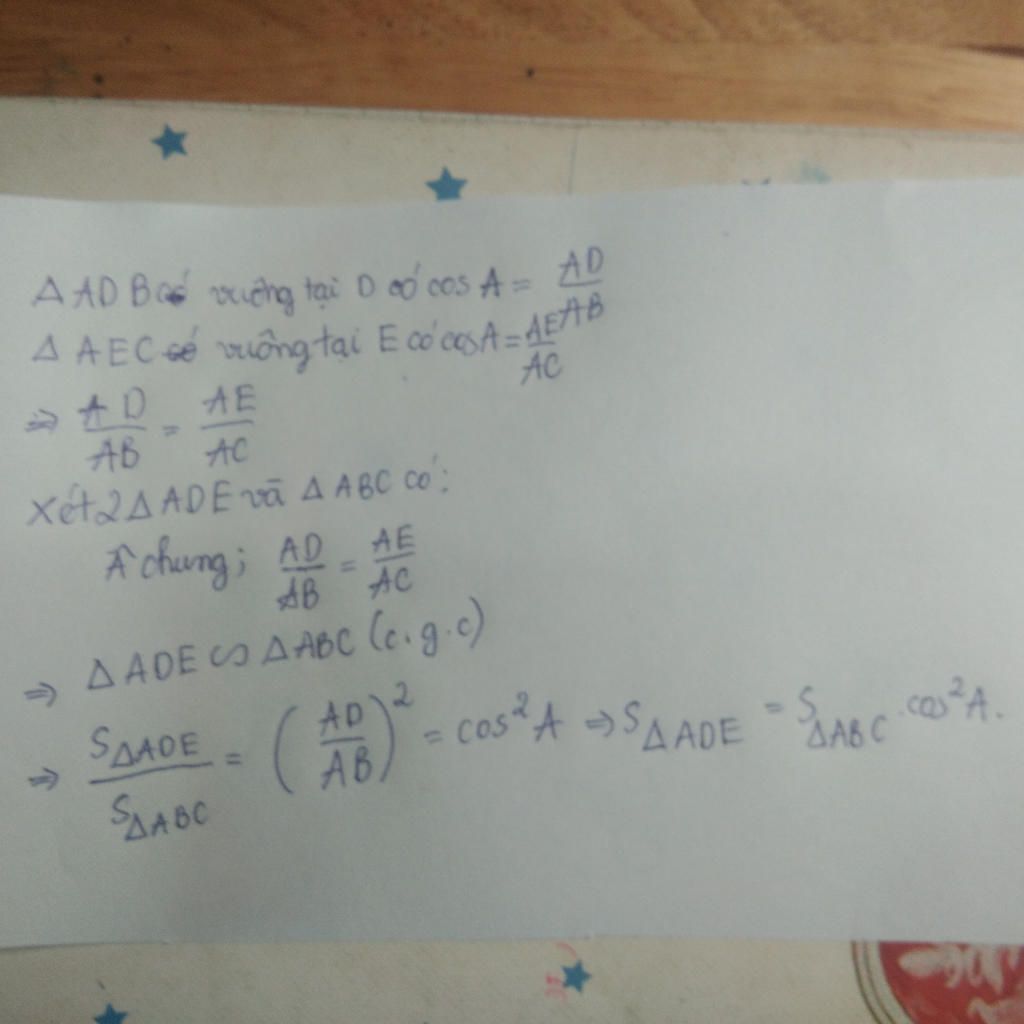 Δ ADB vuông tại D có cos A = AD/AB
Δ AEC vuông tại E có cos A = AE/AC
⇒ AD/AB = AE/AC
Xét 2 Δ ADE và Δ ABC có:
Â chung; AD/AB = AE/AC
⇒ Δ ADE ∽ Δ ABC (c.g.c)
⇒ S_ΔADE/S_ΔABC = (AD/AB)² = cos²A ⇒ S_ΔADE = S_ΔABC . cos²A.